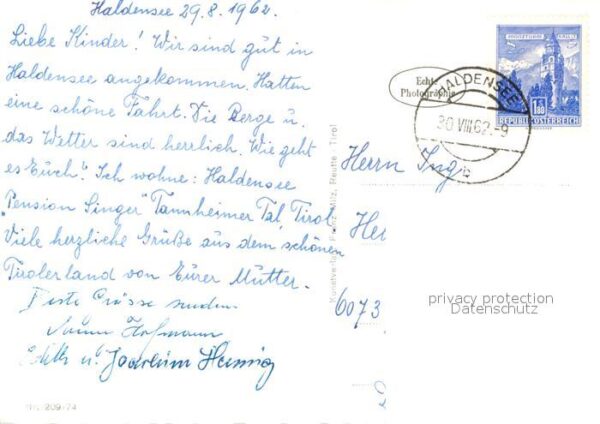 Haldensee 29.8.1962.
Liebe Kinder! Wir sind gut in
Haldensee angekommen. Hatten
eine schöne Fahrt. Die Berge u.
das Wetter sind herrlich. Wie geht
es Euch? Ich wohne: Haldensee
"Pension Singer" Tannheimer Tal, Tirol
Viele herzliche Grüße aus dem schönen
Tirolerland von Eurer Mutter.
Beste Grüsse senden
Hofmann
u. Joachim Hennig
209-74
Kunstverlag Franz Milz, Reutte, Tirol
Echte
Photographie
HALDENSEE
30.VIII.62.-9
1.80
REPUBLIK ÖSTERREICH
Herrn Ing.
He
6073
privacy protection
Datenschutz